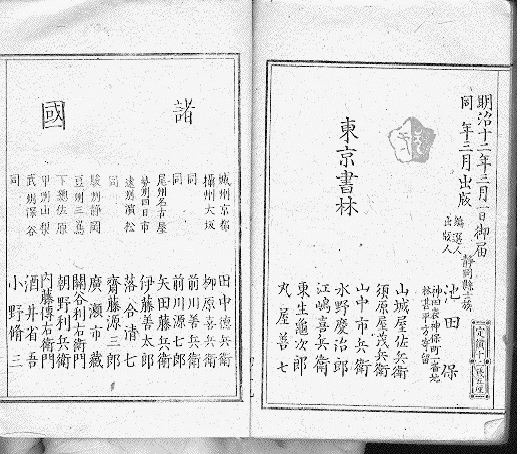 明治十二年三月一日御届
同 年三月出版
編選人
出版人
静岡縣士族
池田保
神田裏神保町一番地
林甚平方寄留
東京書林
山城屋佐兵衛
須原屋茂兵衛
山中市兵衛
水野慶治郎
江嶋喜兵衛
東生亀次郎
丸屋善七
諸國
城州京都 田中德兵衛
攝州大坂 柳原喜兵衛
同 前川善兵衛
同 前川源七郎
尾州名古屋 矢田藤兵衛
勢州四日市 伊藤善太郎
遠州濱松 落合清七
同 齋藤源三郎
駿州静岡 廣瀬市藏
豆州三島 關谷利右衛門
下總佐原 朝野利兵衛
甲州山梨 内藤傳右衛門
武州深谷 酒井省吾
同 小野脩三